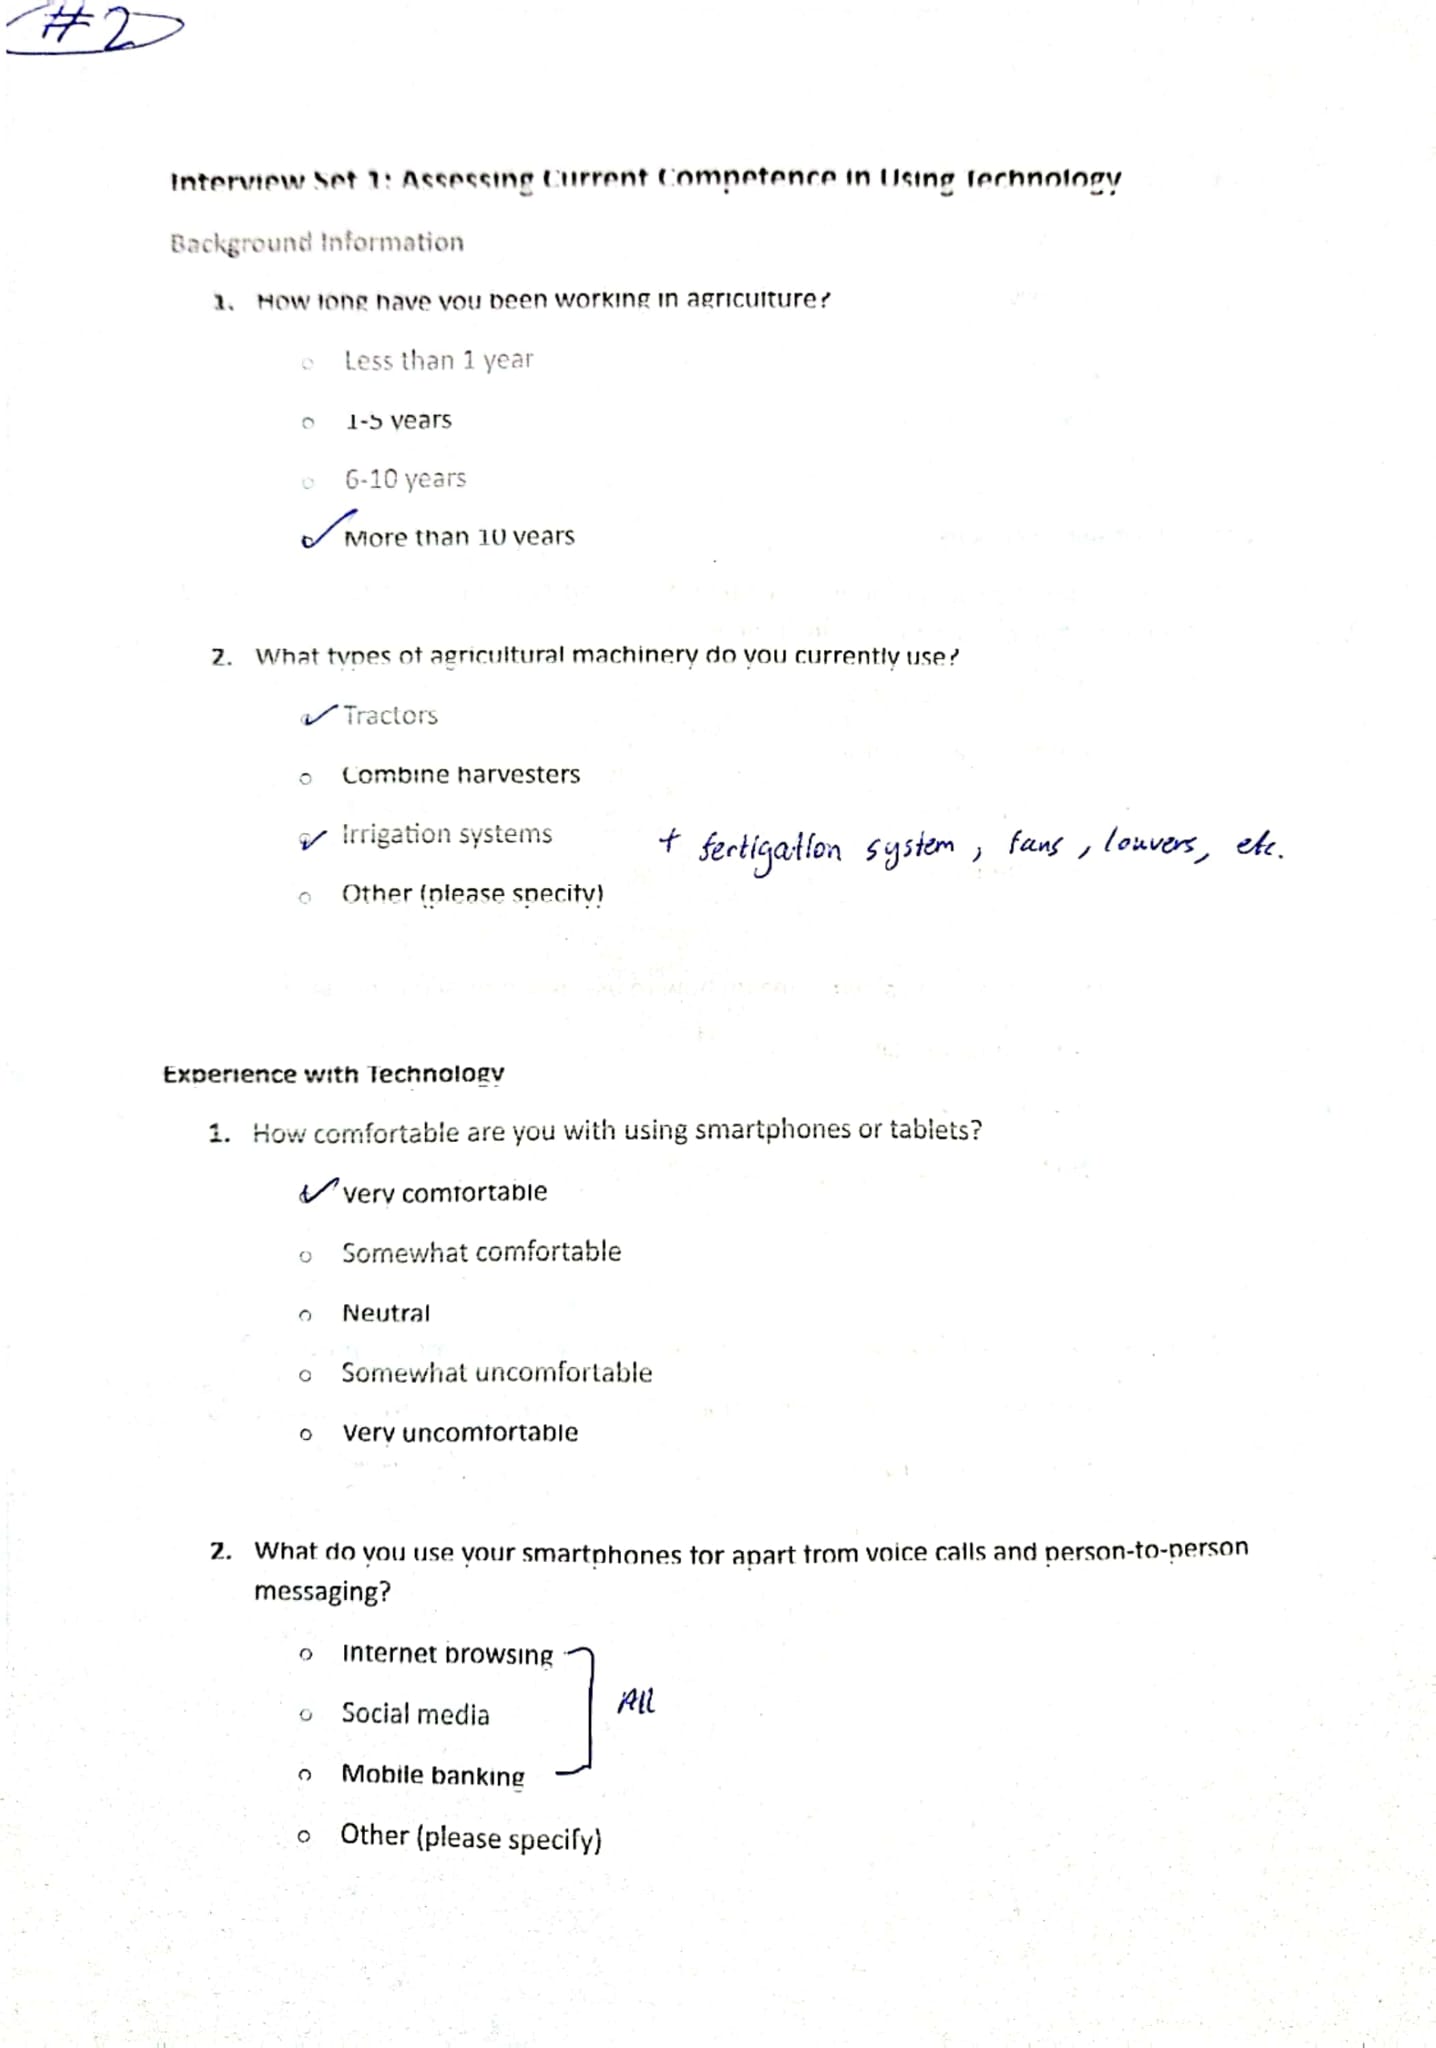 #2
Interview Set 1: Assessing Current Competence in Using Technology
Background Information
1. How long have you been working in agriculture?
o Less than 1 year
o 1-5 years
o 6-10 years
✓ More than 10 years
2. What types of agricultural machinery do you currently use?
✓ Tractors
o Combine harvesters
✓ Irrigation systems + fertigation system, fans, louvers, etc.
o Other (please specify)
Experience with Technology
1. How comfortable are you with using smartphones or tablets?
✓ Very comfortable
o Somewhat comfortable
o Neutral
o Somewhat uncomfortable
o Very uncomfortable
2. What do you use your smartphones for apart from voice calls and person-to-person
messaging?
o Internet browsing
o Social media All
o Mobile banking
o Other (please specify)